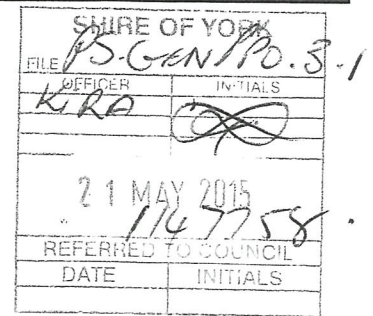 SHIRE OF YORK
FILE PS-GEN PPD.3.1
OFFICER INITIALS
KIRA
21 MAY 2015
1147758.
REFERRED TO COUNCIL
DATE INITIALS